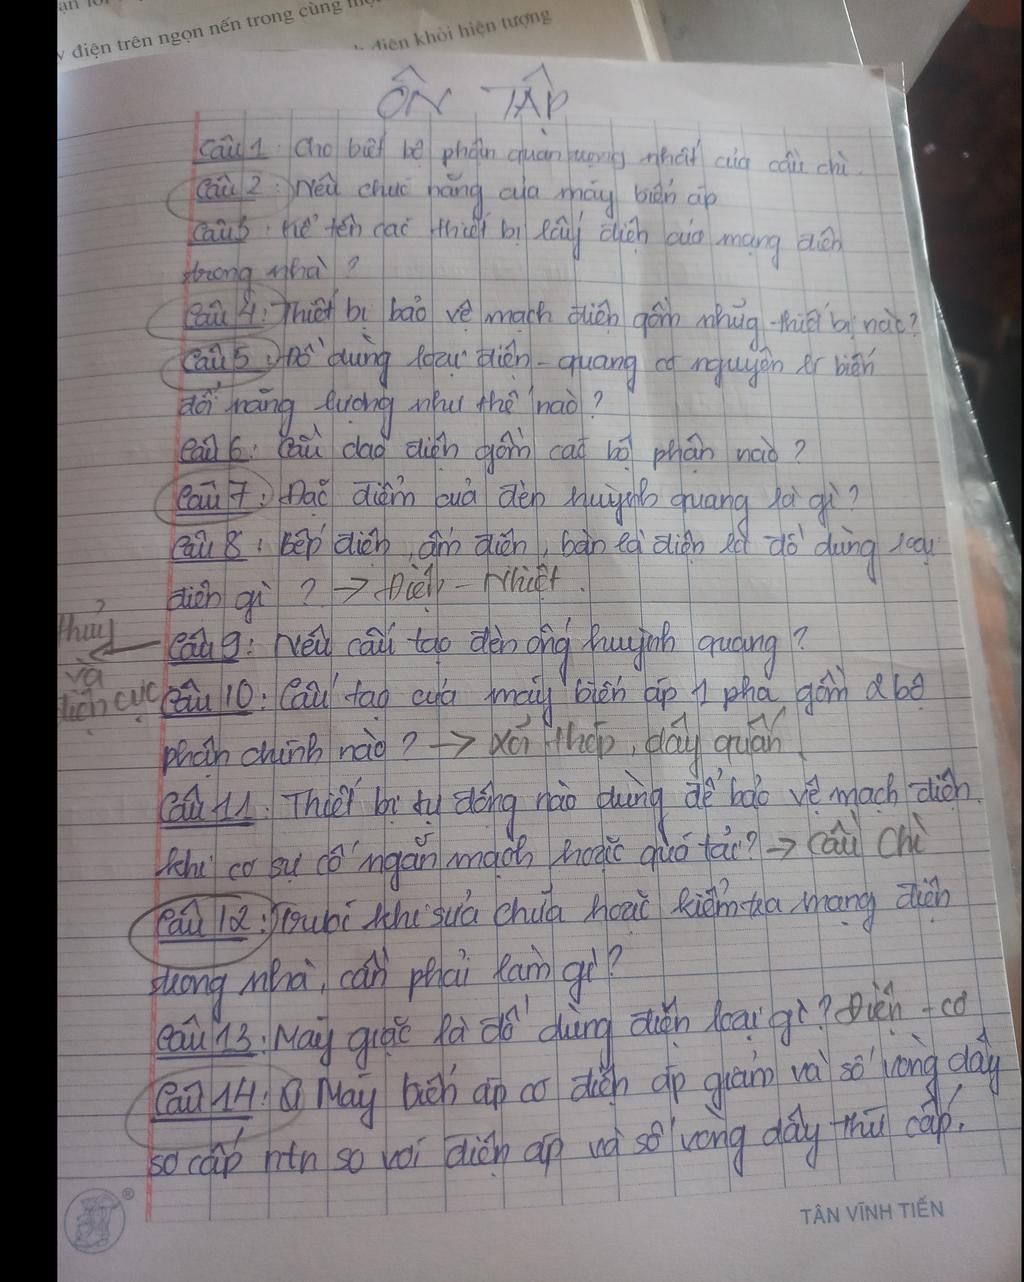 y điện trên ngọn nến trong cùng
điện khỏi hiện tượng
ÔN TẬP
Câu 1: Cho biết bộ phận quan trọng nhất của cầu chì.
Câu 2: Nêu chức năng của máy biến áp
Câu 3: Kể tên các thiết bị lấy điện của mạng điện
trong nhà?
Câu 4: Thiết bị bảo vệ mạch điện gồm những thiết bị nào?
Câu 5: Đồ dùng loại điện - quang có nguyên lí biến
đổi năng lượng như thế nào?
Câu 6: Cầu dao điện gồm các bộ phận nào?
Câu 7: Đặc điểm của đèn huỳnh quang là gì?
Câu 8: Bếp điện, ấm điện, bàn là điện là đồ dùng loại
điện gì? → Điện - Nhiệt.
thuỷ
và
điện cực
Câu 9: Nêu cấu tạo đèn ống huỳnh quang?
Câu 10: Cấu tạo của máy biến áp 1 pha gồm 2 bộ
phận chính nào? → Lõi thép, dây quấn
Câu 11: Thiết bị tự động nào dùng để bảo vệ mạch điện
khi có sự cố ngắn mạch hoặc quá tải? → Cầu Chì
Câu 12: Trước khi sửa chữa hoặc kiểm tra mạng điện
trong nhà, cần phải làm gì?
Câu 13: Máy giặt là đồ dùng điện loại gì? Điện - cơ
Câu 14: Máy biến áp có điện áp giảm và số vòng dây
sơ cấp ntn so với điện áp và số vòng dây thứ cấp.
®
TÂN VĨNH TIẾN